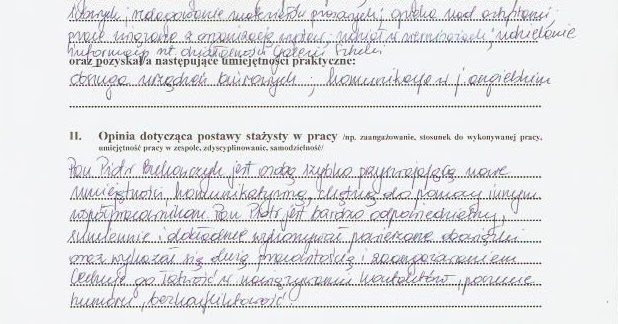 i redagowanie materiałów prasowych; opieka nad
prace związane z organizacją wystaw; udział w wernisażach; udzielanie
informacji nt. działalności Galerii Sztuki
oraz pozyskał/a następujące umiejętności praktyczne:
obsługa urządzeń biurowych; komunikacja w j. angielskim
II. Opinia dotycząca postawy stażysty w pracy /np. zaangażowanie, stosunek do wykonywanej pracy,
umiejętność pracy w zespole, zdyscyplinowanie, samodzielność/
Pan Piotr jest osobą szybko przyswajającą nowe
umiejętności, komunikatywną, chętną do pomocy innym
współpracownikom. Pan Piotr jest bardzo odpowiedzialny,
sumiennie i dokładnie wykonywał powierzone obowiązki
oraz wykazał się dużą pracowitością i zaangażowaniem
Cechuje go łatwość w nawiązywaniu kontaktów, poczucie
humoru, bezkonfliktowość